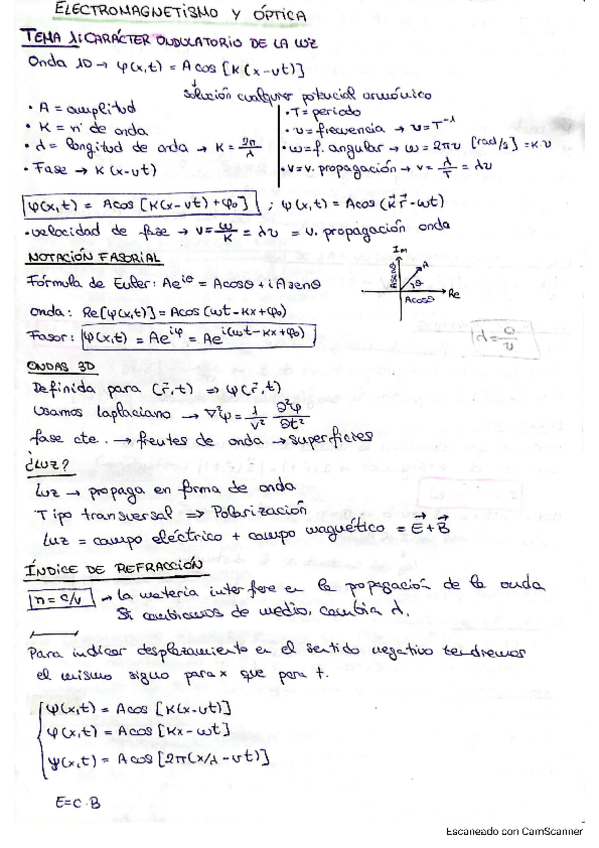 ELECTROMAGNETISMO Y ÓPTICA
TEMA 1: CARÁCTER ONDULATORIO DE LA LUZ
Onda 1D → φ(x,t) = A cos [K(x-vt)]
solución cualquier potencial armónico
• A = amplitud
• K = nº de onda
• λ = longitud de onda → K = 2π/λ
• Fase → K(x-vt)
• T = periodo
• ν = frecuencia → ν = T⁻¹
• ω = f. angular → ω = 2πν [rad/s] = K·v
• v = v. propagación → v = λ/T = λν
φ(x,t) = A cos [K(x-vt) + φ₀] ; φ(x,t) = A cos (K⃗ r⃗ - ωt)
• velocidad de fase → v = ω/K = λν = v. propagación onda
NOTACIÓN FASORIAL
Fórmula de Euler: Ae^{iθ} = A cosθ + i A senθ
onda: Re[φ(x,t)] = A cos (ωt - kx + φ₀)
Fasor: φ(x,t) = Ae^{iφ} = Ae^{i(ωt - kx + φ₀)}
Im
A senθ
A
θ
A cosθ
Re
ONDAS 3D
Definida para (r⃗,t) → φ(r⃗,t)
Usamos laplaciano → ∇²φ = 1/v² ∂²φ/∂t²
fase cte. → frentes de onda → superficies
¿LUZ?
Luz → propaga en forma de onda
Tipo transversal => Polarización
Luz = campo eléctrico + campo magnético = E⃗ + B⃗
ÍNDICE DE REFRACCIÓN
n = c/v → la materia interfiere en la propagación de la onda
Si cambiamos de medio, cambia λ.
Para indicar desplazamiento en el sentido negativo tendremos
el mismo signo para x que para t.
φ(x,t) = A cos [K(x-vt)]
φ(x,t) = A cos [Kx - ωt]
ψ(x,t) = A cos [2π(x/λ - νt)]
E=C·B
Escaneado con CamScanner